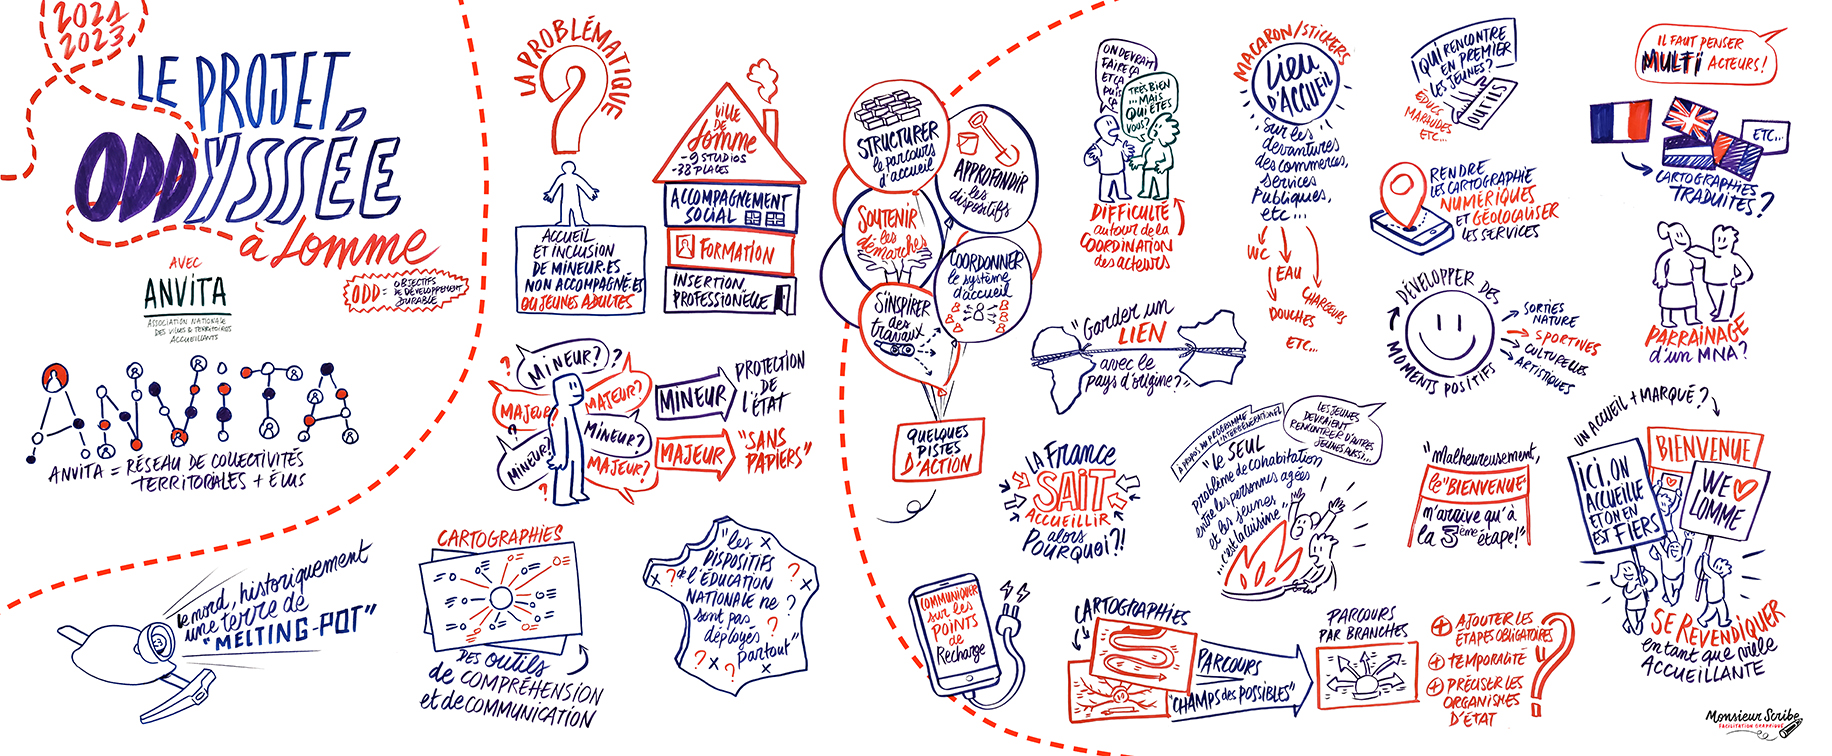 2021
2023
LE PROJET
ODDYSSÉE
à Lomme
AVEC
ANVITA
ASSOCIATION NATIONALE
DES VILLES & TERRITOIRES
ACCUEILLANTS
ODD = OBJECTIFS
DE DÉVELOPPEMENT
DURABLE
ANVITA
ANVITA = RÉSEAU DE COLLECTIVITÉS
TERRITORIALES + ÉLUS
Le nord, historiquement
une terre de
"MELTING-POT"
LA PROBLÉMATIQUE
?
ACCUEIL
ET INCLUSION
DE MINEUR.ES
NON ACCOMPAGNÉ.ES
OU JEUNES ADULTES
VILLE
DE
Lomme
- 9 STUDIOS
- 38 PLACES
ACCOMPAGNEMENT
SOCIAL
FORMATION
INSERTION
PROFESSIONNELLE
MINEUR?
MAJEUR?
MAJEUR?
MINEUR?
MINEUR?
MAJEUR?
MINEUR
PROTECTION
DE
L'ÉTAT
MAJEUR
"SANS
PAPIERS"
CARTOGRAPHIES
DES OUTILS
de COMPRÉHENSION
et de COMMUNICATION
"les
DISPOSITIFS
de L'ÉDUCATION
NATIONALE ne
sont pas
déployés
partout"
STRUCTURER
le parcours
d'accueil
APPROFONDIR
les
dispositifs
SOUTENIR
les
démarches
COORDONNER
le système
d'accueil
S'INSPIRER
des
travaux
QUELQUES
PISTES
D'ACTION
COMMUNIQUER
sur les
POINTS
de
Recharge
ON DEVRAIT
FAIRE ÇA
ET ÇA
PUIS
ÇA
TRÈS BIEN
... MAIS
QUI ÊTES
VOUS?
DIFFICULTÉ
autour de la
COORDINATION
des acteurs
MACARON/STICKERS
Lieu
D'ACCUEIL
sur les
devantures
des commerces,
services
publiques,
etc ...
WC
EAU
DOUCHES
CHARGEURS
ETC...
QUI RENCONTRE
EN PREMIER
LES JEUNES?
ÉDUCS
MARAUDES
ETC...
OUTILS
RENDRE
LES CARTOGRAPHIE
NUMÉRIQUES
ET GÉOLOCALISER
LES SERVICES
IL FAUT PENSER
MULTI ACTEURS!
ETC...
CARTOGRAPHIES
TRADUITES?
"Garder un
LIEN
avec le
pays d'origine?"
DÉVELOPPER DES
MOMENTS POSITIFS
SORTIES
NATURE
SPORTIVES
CULTURELLES
ARTISTIQUES
PARRAINAGE
d'un MNA?
LA France
SAIT
ACCUEILLIR
alors
POURQUOI?!
À PROPOS DU PROGRAMME
INTERGÉNÉRATIONNEL
"LE SEUL
problème de cohabitation
entre les personnes agées
et les jeunes
c'est la cuisine"
LES JEUNES
DEVRAIENT
RENCONTRER D'AUTRES
JEUNES AUSSI...
"Malheureusement,
le "BIENVENUE"
m'arrive qu'à
la 3ème étape!"
UN ACCUEIL + MARQUÉ?
ICI, ON
ACCUEILLE
ET ON EN
EST FIERS
BIENVENUE
WE
LOMME
SE REVENDIQUER
en tant que ville
ACCUEILLANTE
CARTOGRAPHIES
PARCOURS
"CHAMPS des POSSIBLES"
PARCOURS
PAR BRANCHES
+ AJOUTER LES
ÉTAPES OBLIGATOIRES
+ TEMPORALITÉ
+ PRÉCISER LES
ORGANISMES
D'ÉTAT
?
Monsieur Scribe
FACILITATION GRAPHIQUE